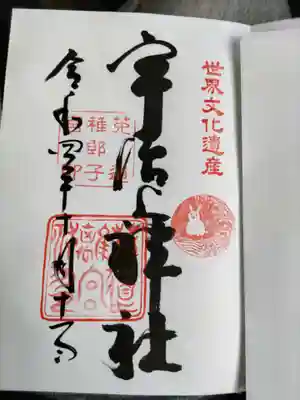 世界文化遺産
宇治上神社
菟道
稚郎子
令和四年十月十日